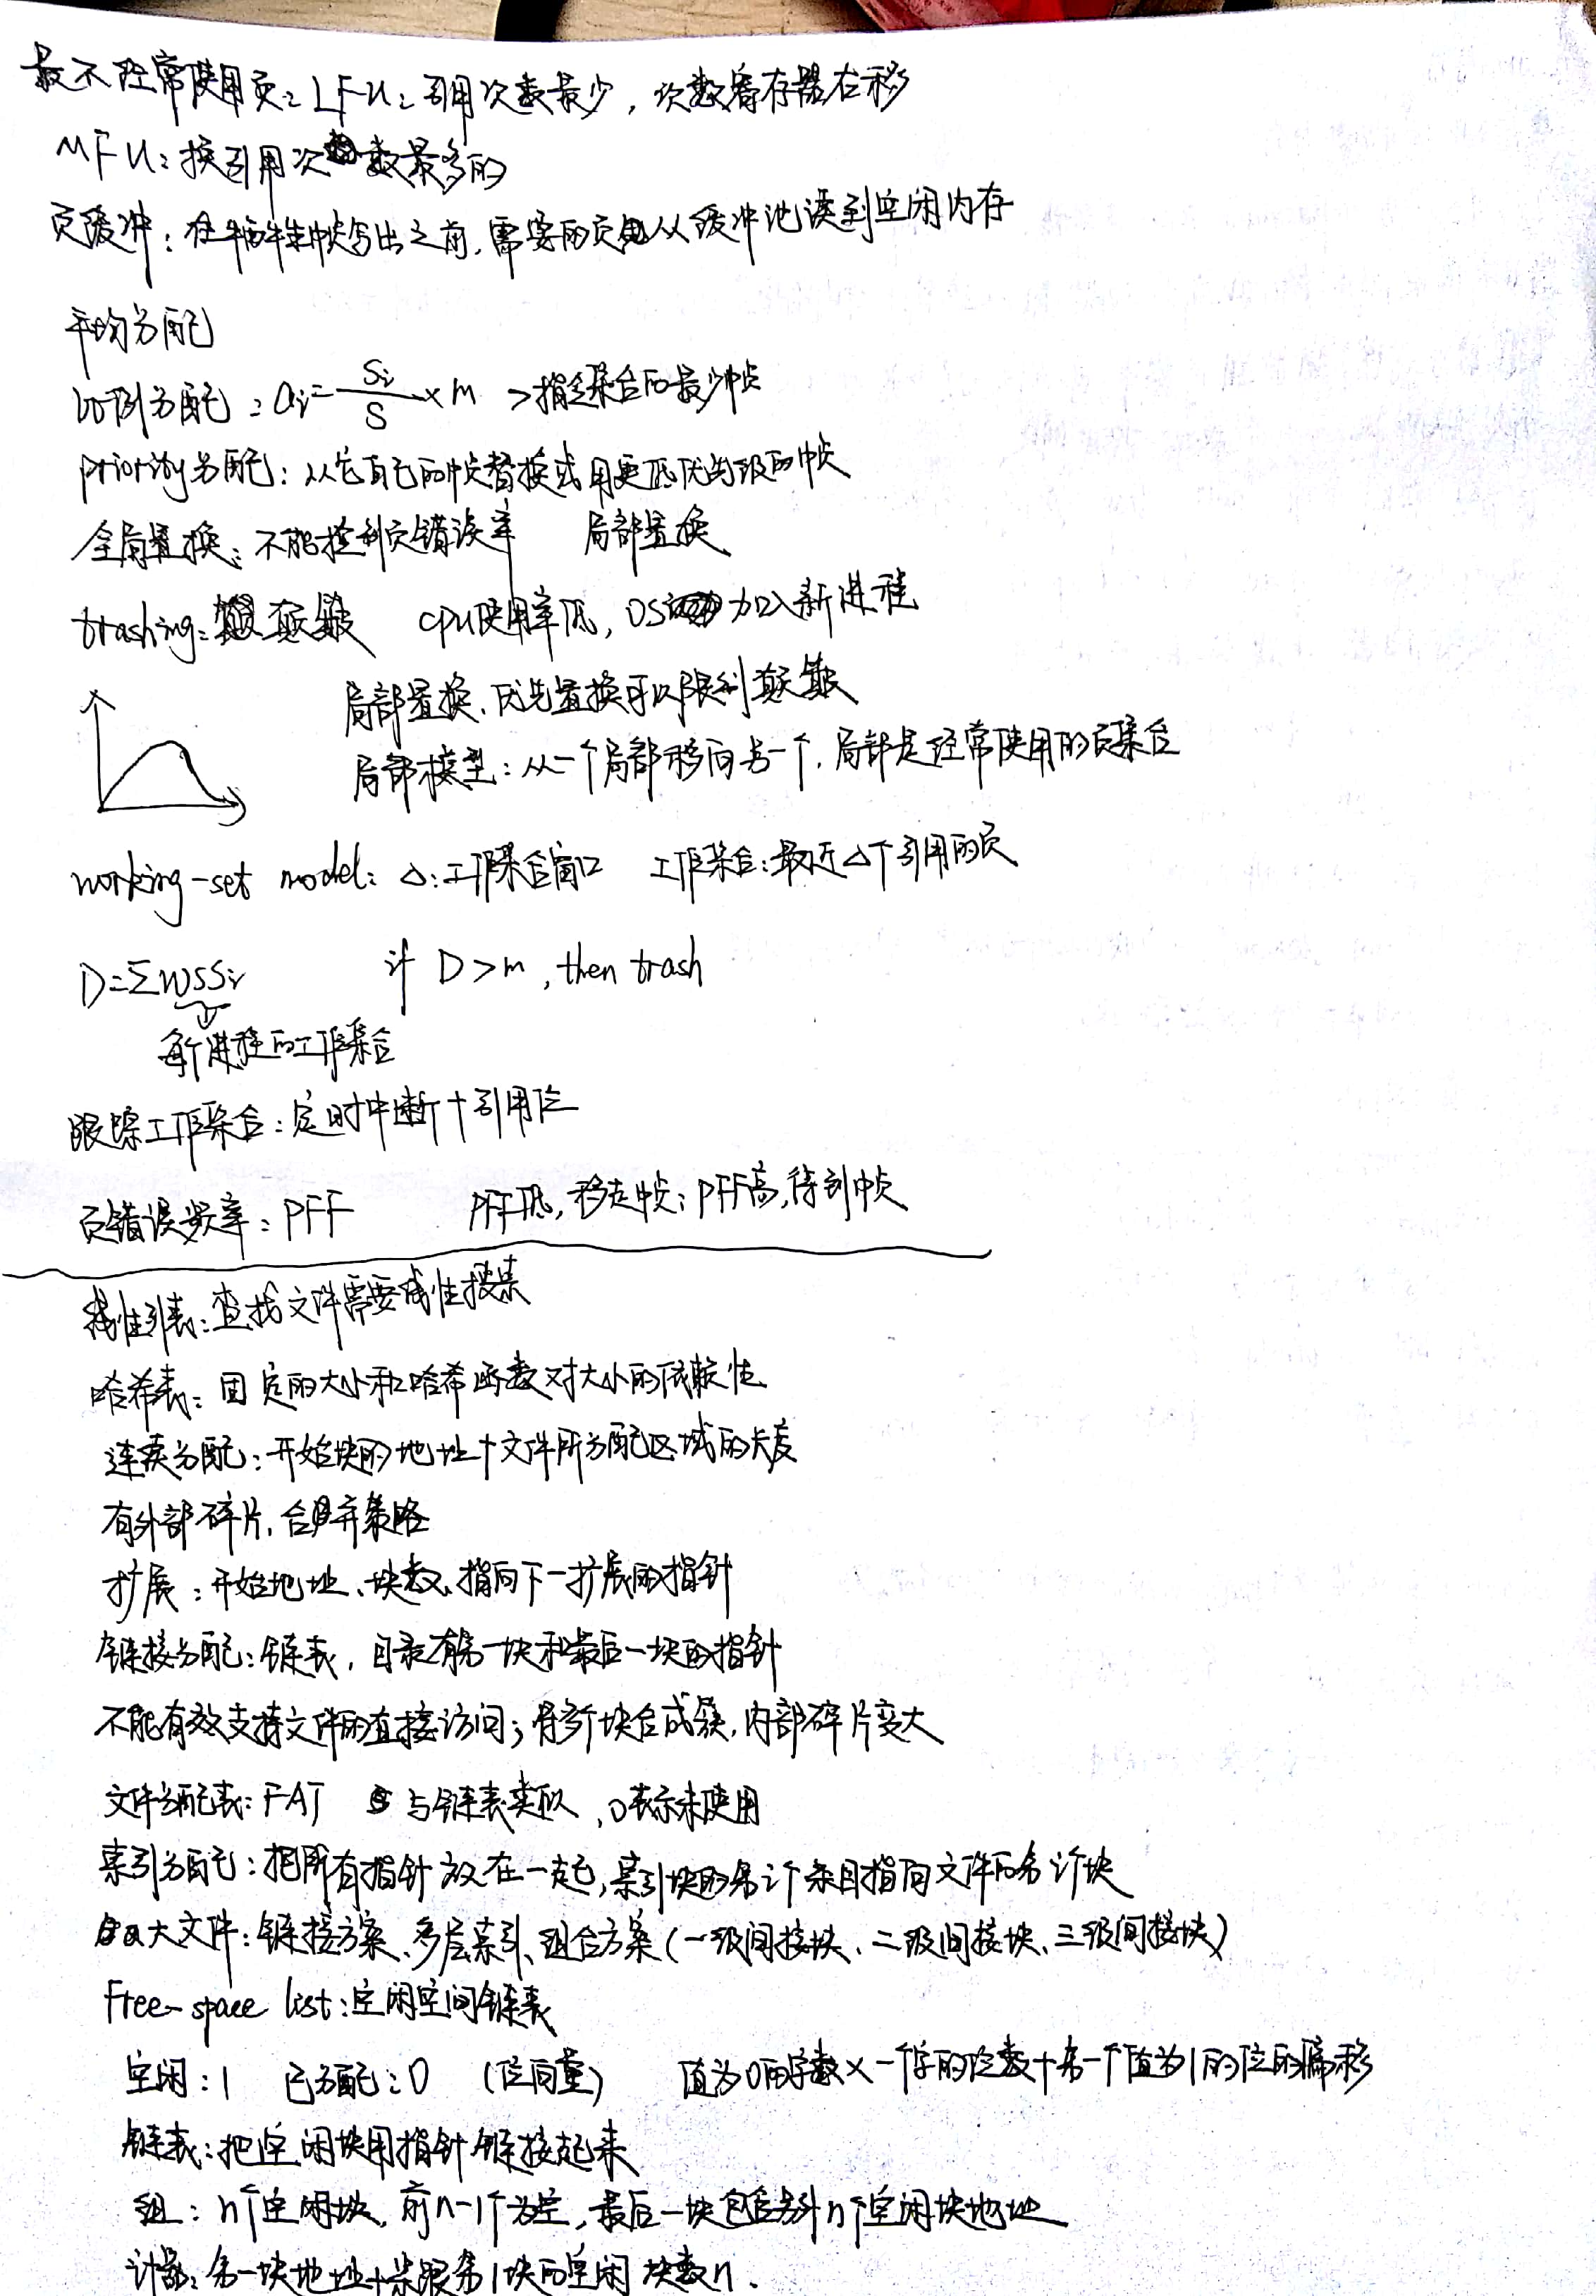 最不经常使用页：LFU：引用次数最少，次数寄存器右移
MFU：换引用次数最多的
页缓冲：在牺牲帧写出之前，需要的页从缓冲池读到空闲内存
平均分配
比例分配：ai = Si/S × m >指令集合的最少帧
priority分配：从它自己的帧替换或用更低优先级的帧
全局置换：不能控制页错误率 局部置换
trashing：颠簸 cpu使用率低，OS加入新进程
局部置换、优先置换可以限制颠簸
局部模型：从一个局部移向另一个，局部是经常使用的页集合
working-set model：Δ：工作集合窗口 工作集合：最近Δ个引用的页
D=ΣWSSi if D>m, then trash
每个进程的工作集合
跟踪工作集合：定时中断+引用位
页错误频率：PFF PFF低，移走帧；PFF高，得到帧
线性列表：查找文件需要线性搜索
哈希表：固定的大小和哈希函数对大小的依赖性
连续分配：开始块的地址+文件所分配区域的长度
有外部碎片，合并策略
扩展：开始地址、块数、指向下一扩展的指针
链接分配：链表，目录有第一块和最后一块的指针
不能有效支持文件的直接访问；将多个块合成簇，内部碎片变大
文件分配表：FAT 与链表类似，0表示未使用
索引分配：把所有指针放在一起，索引块的第i个条目指向文件的第i个块
大文件：链接方案、多层索引、组合方案（一级间接块、二级间接块、三级间接块）
Free-space list：空闲空间链表
空闲：1 已分配：0 （位向量） 值为0的字数×一个字的位数+第一个值为1的位的偏移
链表：把空闲块用指针链接起来
组：n个空闲块，前n-1个为空，最后一块包含另外n个空闲块地址
计数：第一块地址+紧跟第1块的空闲块数n.